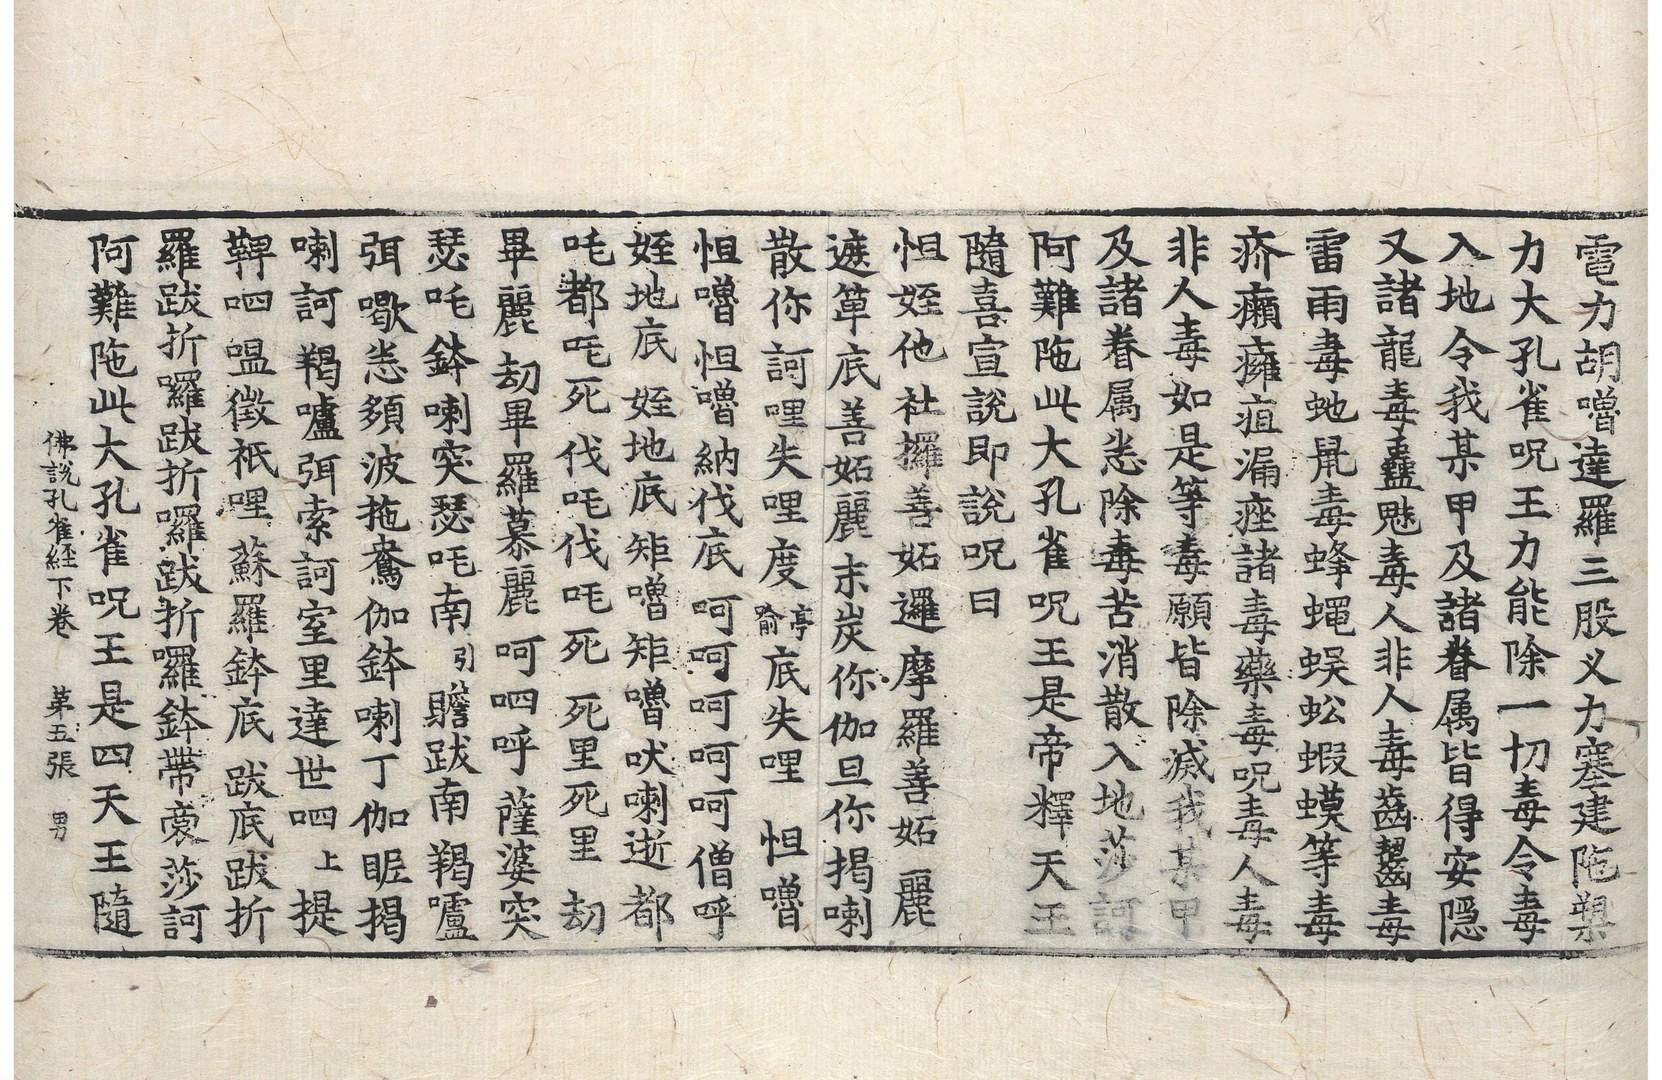 電力胡嚕達羅三股叉力塞建陁槊
力大孔雀呪王力能除一切毒令毒
入地令我某甲及諸眷属皆得安隱
又諸龍毒蠱魅毒人非人毒齒齧毒
雷雨毒虵鼠毒蜂蠅蜈蚣蝦蟆等毒
疥癩癰疽漏痤諸毒藥毒呪毒人毒
非人毒如是等毒願皆除滅我某甲
及諸眷属悉除毒苦消散入地莎訶
阿難陁此大孔雀呪王是帝釋天王
隨喜宣說即說呪曰
怛姪他社攞善妬邏摩羅善妬麗
遮箄底善妬麗末炭你伽旦你揭喇
散你訶哩失哩度亭喻底失哩 怛嚕
怛嚕怛嚕納伐底呵呵呵呵呵僧呼
姪地底姪地底矩嚕矩嚕吠喇逝都
吒都吒死伐吒伐吒死死里死里 劫
畢麗劫畢羅慕麗呵呬呼薩婆突
瑟吒鉢喇突瑟吒南引瞻跋南羯嚧
弭歇悉頞波拖鴦伽鉢喇丁伽昵揭
喇訶羯嚧弭索訶室里達世呬上提
鞞呬嗢徵祇哩蘇羅鉢底跋底跋折
羅跋折囉跋折囉跋折囉鉢帶裔莎訶
阿難陁此大孔雀呪王是四天王隨
佛說孔雀経下卷 苐五張 男